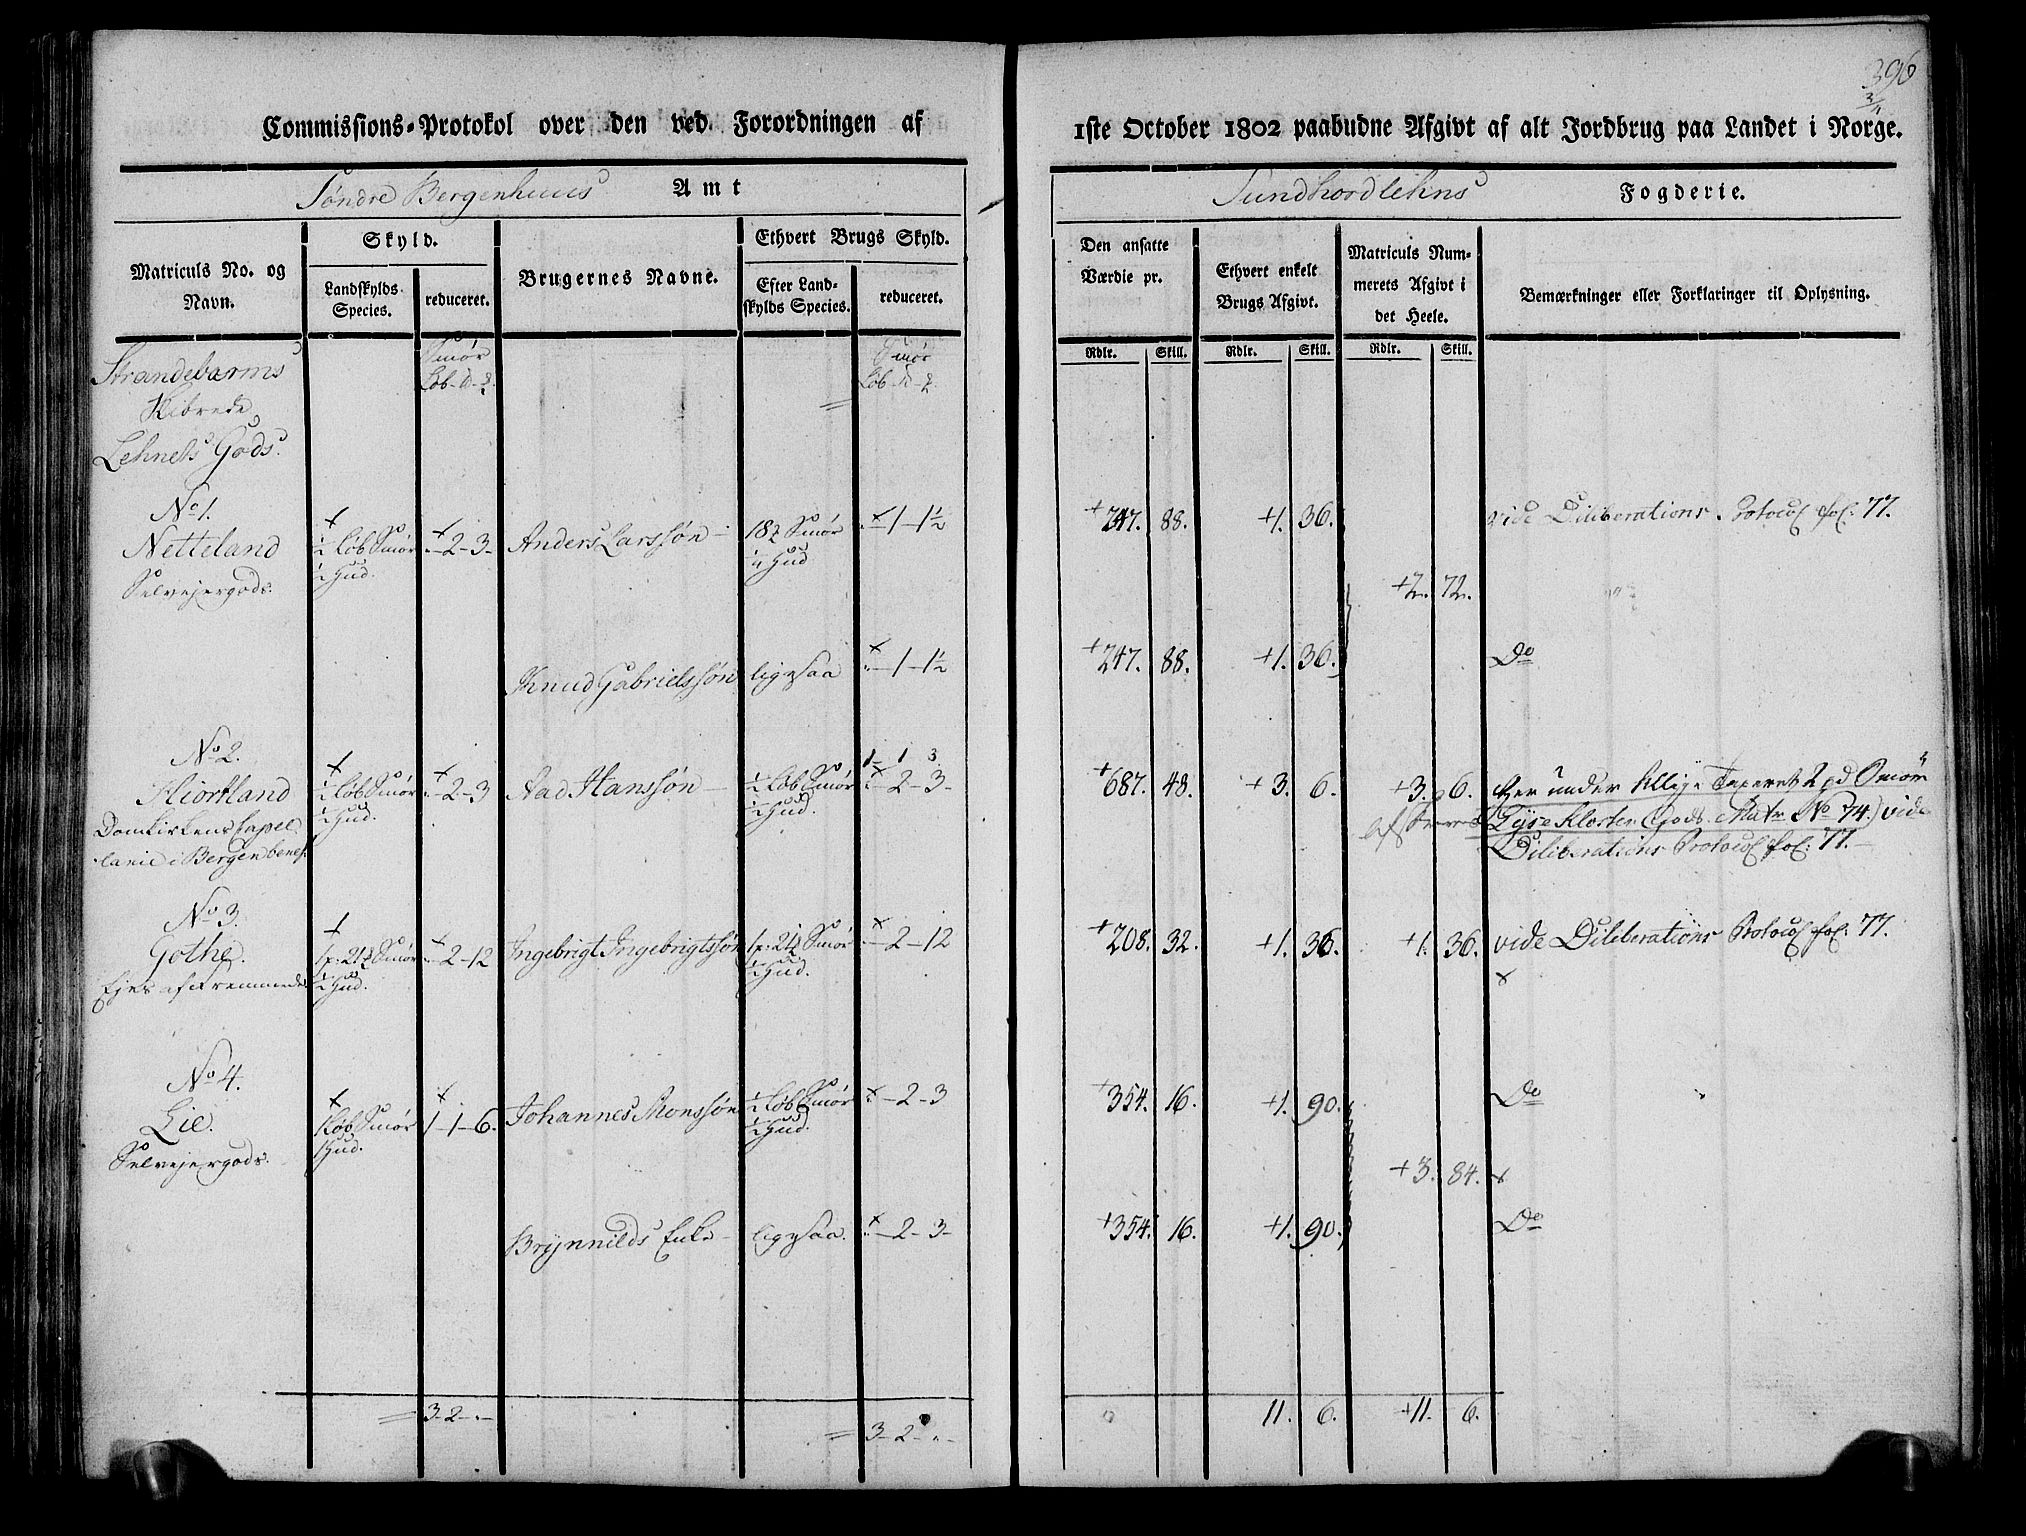 396
3/11
Commissions-Protokol over den ved Forordningen af 1ste October 1802 paabudne Afgivt af alt Jordbrug paa Landet i Norge.
Søndre Bergenhuus Amt Sundhordlehns Fogderie.
Matriculs No. og Navn.
Skyld.
Landskylds Species.
reduceret.
Brugernes Navne.
Ethvert Brugs Skyld.
Efter Landskylds Species.
reduceret.
Den ansatte Værdie pr.
Ethvert enkelt Brugs Afgivt.
Matriculs Nummerets Afgivt i det Heele.
Bemærkninger eller Forklaringer til Oplysning.
Rdlr. Skill. Rdlr. Skill. Rdlr. Skill.
Strandebarms
Smør
Smør
Kibrede
Lehnets Gods.
No 1.
Netteland ½ Løb Smør - 2 - 3 - Anders Larssøn - Smør - 1 - 1½ +247. 88. +1. 36. vide Deliberations Protocol fol: 77.
½ Hud. Hud
Selvejergods. +2. 72.
Knud Gabrielssøn ligesaa - 1 - 1½ +247. 88. +1. 36. Do
No 2.
1 - 1 3.
Hiortland ½ Løb Smør - 2 - 3 Aad Hanssøn ½ Løb Smør - 2 - 3 - +687. 48. +3. 6. +3. 6. Her under Smør
½ Hud. ½ Hud.
Domkirkens Capel Lyse Kloster Gods Matr No 74.) vide
lanie i Bergen benef. Deliberations Protocol fol: 77. -
No 3.
Gothe. Smør - 2 - 12 Ingebrigt Ingebrigtssøn Smør - 2 - 12 +208. 32. +1. 36. +1. 36. vide Deliberations Protocol fol. 77.
½ Hud. ½ Hud.
Ejes af Fremmede x
No 4.
Lie. 1 Løb Smør 1 - 1 - 6. Johannes Monssøn ½ Løb Smør - 2 - 3 +354. 16. +1. 90. Do
1 Hud. ½ Hud.
Selvejergods. +3. 84. x
Brÿnnilds Enke - ligesaa. - 2 - 3 - +354. 16. +1. 90. Do
= 3 - 2 - - = 3 - 2 - - 11. 6. +11. 6.